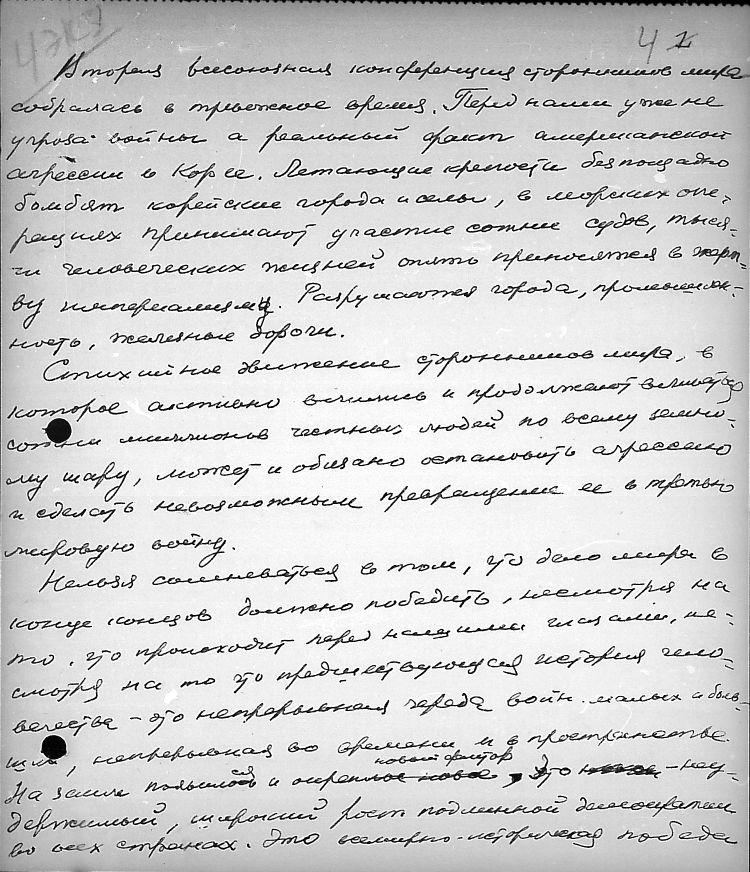 42
Вторая всесоюзная конференция сторонников мира
собралась в тревожное время. Перед нами уже не
угроза войны а реальный факт американской
агрессии в Корее. Летающие крепости беспощадно
бомбят корейские города и селы, в морских опе-
рациях принимают участие сотни судов, тыся-
чи человеческих жизней опять приносятся в жерт-
ву империализму. Разрушаются города, промышлен-
ность, железные дороги.
Стихийное движение сторонников мира, в
которое активно включились и продолжают включаться
сотни миллионов честных людей по всему земно-
му шару, может и обязано остановить агрессию
и сделать невозможным превращение ее в третью
мировую войну.
Нельзя сомневаться в том, что дело мира в
конце концов должно победить, несмотря на
то, что происходит перед нашими глазами, не-
смотря на то что предшествующая история чело-
вечества - это непрерывная череда войн малых и боль-
ших, непрерывная во времени и в пространстве.
новый фактор
На земле появился и окреп ново, Это - неу-
держимый, широкий рост подлинной демократии
во всех странах. Это всемирно-историческая победа